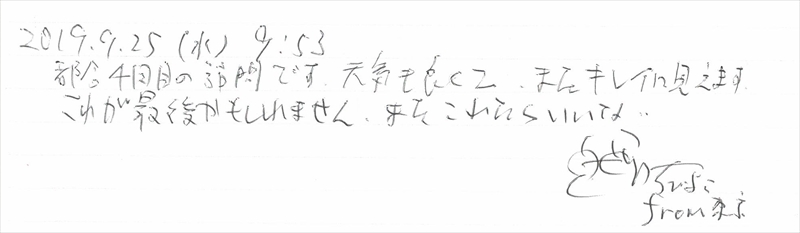 2019.9.25 (水) 9:53
都合4回目の訪問です。天気も良くて、またキレイに見えます。
これが最後かもしれません、またこれたらいいな..
from 東京